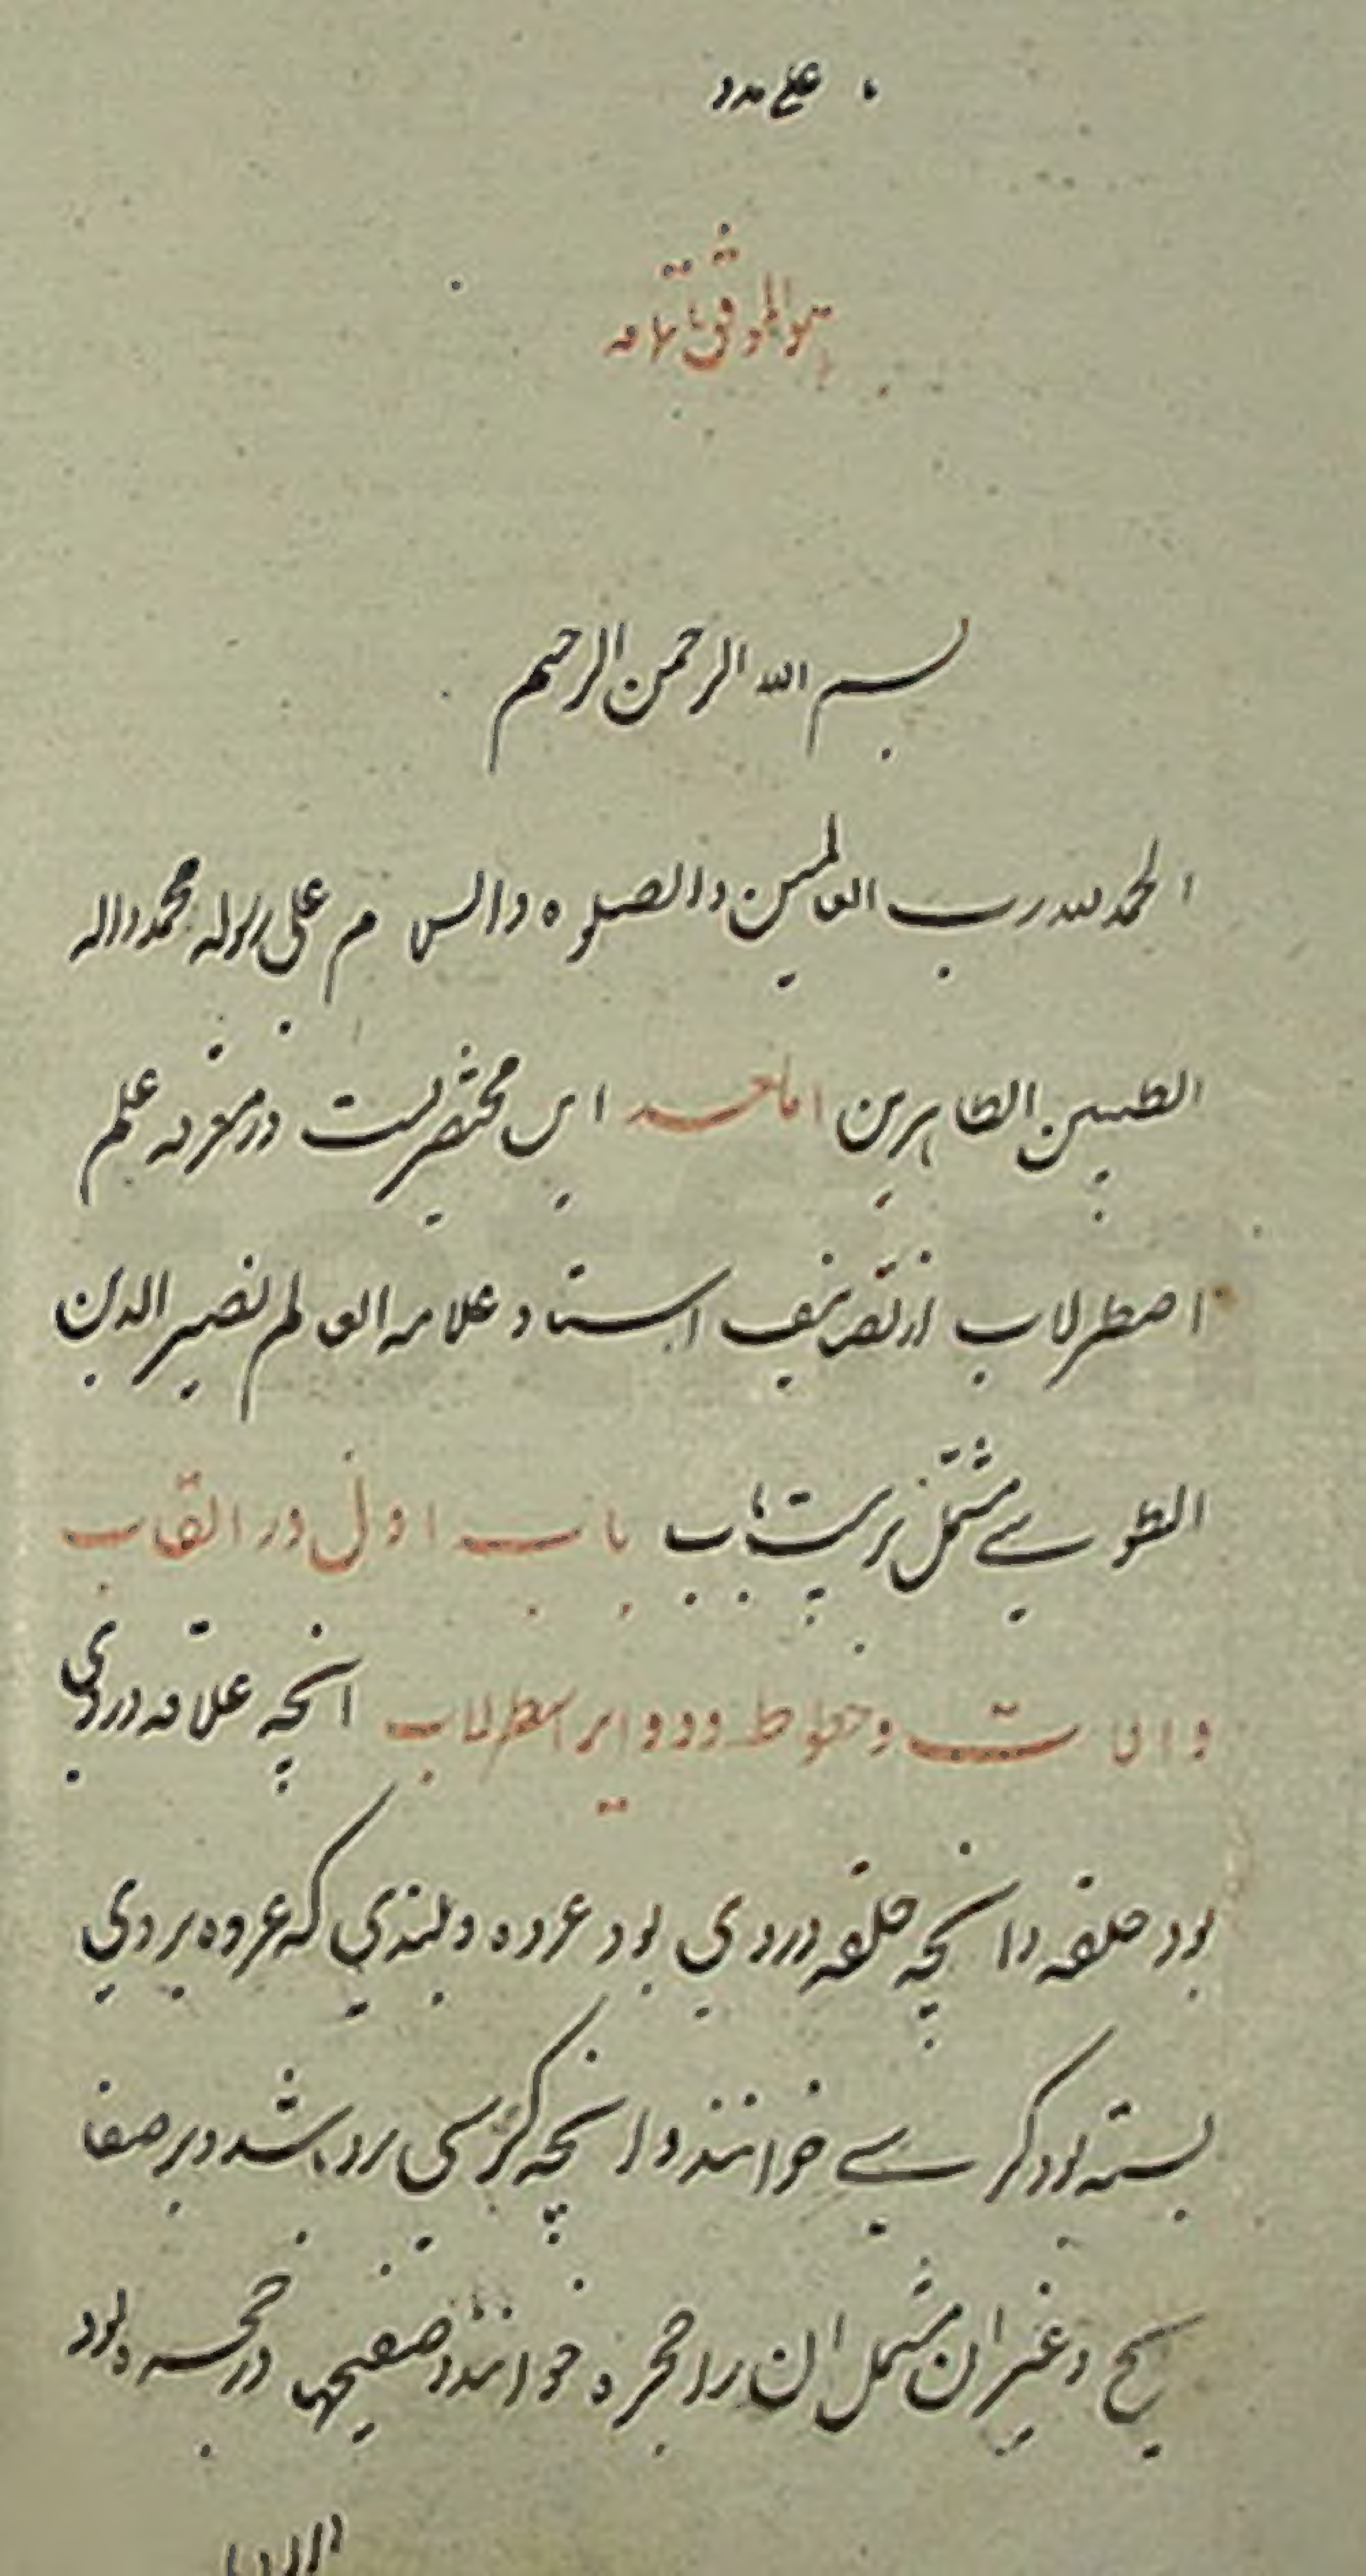 هو الموفق
بسم الله الرحمن الرحیم
الحمد لله رب العالمین والصلوه والسلام علی رسوله محمد واله
الطیبین الطاهرین اما بعد این مختصریست در معرفه علم
اصطرلاب از تصانیف استاد علامه العالم نصیر الدین
الطوسے مشتمل بر بیست باب باب اول در القاب
والات وخطوط ودوایر اسطرلاب انچه علاقه در وی
بود حلقه وانچه حلقه در وی بود عروه وبلندی که عروه بر وی
بسته بود کرسے خوانند وانچه کرسی برو باشد و بر صفا
یح وغیر ان مشتمل ان را حجره خوانند وصفیحها در حجره بود